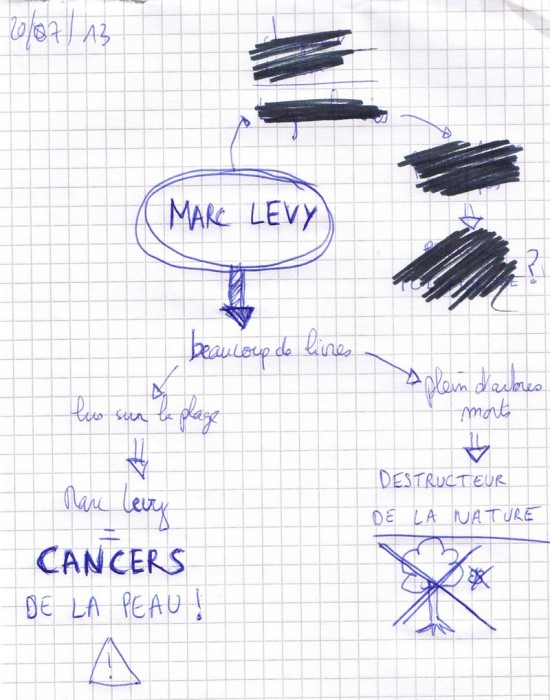 20/07/13
?
MARC LEVY
beaucoup de livres
lus sur la plage
plein d'arbres
morts
Marc Levy
=
CANCERS
DE LA PEAU !
!
DESTRUCTEUR
DE LA NATURE